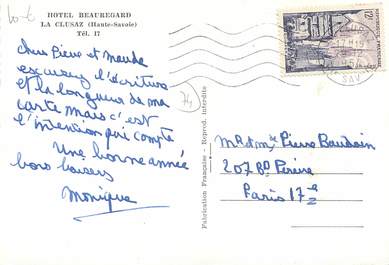 10-6
HOTEL BEAUREGARD
LA CLUSAZ (Haute-Savoie)
Tél. 17
Chers Pierre et Maude
excusez l'écriture
et la longueur de ma
carte mais c'est
l'intention qui compte
Une bonne année
bons baisers
Monique
74
Fabrication Française - Reprod. interdite
12F
17 H
SAV
M et Mme Pierre Baudoin
207 Bd Pereire
Paris 17e